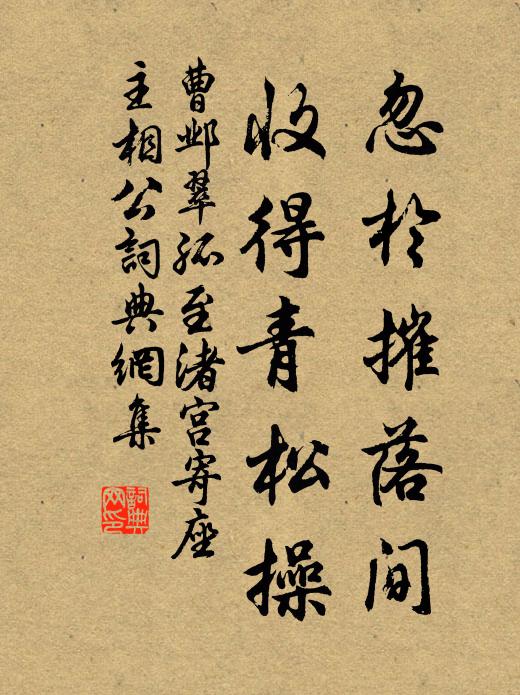 忽於摧落間
收得青松操
曹邺翠孤至渚宮寄座
主相公詞典網集
詞典網印